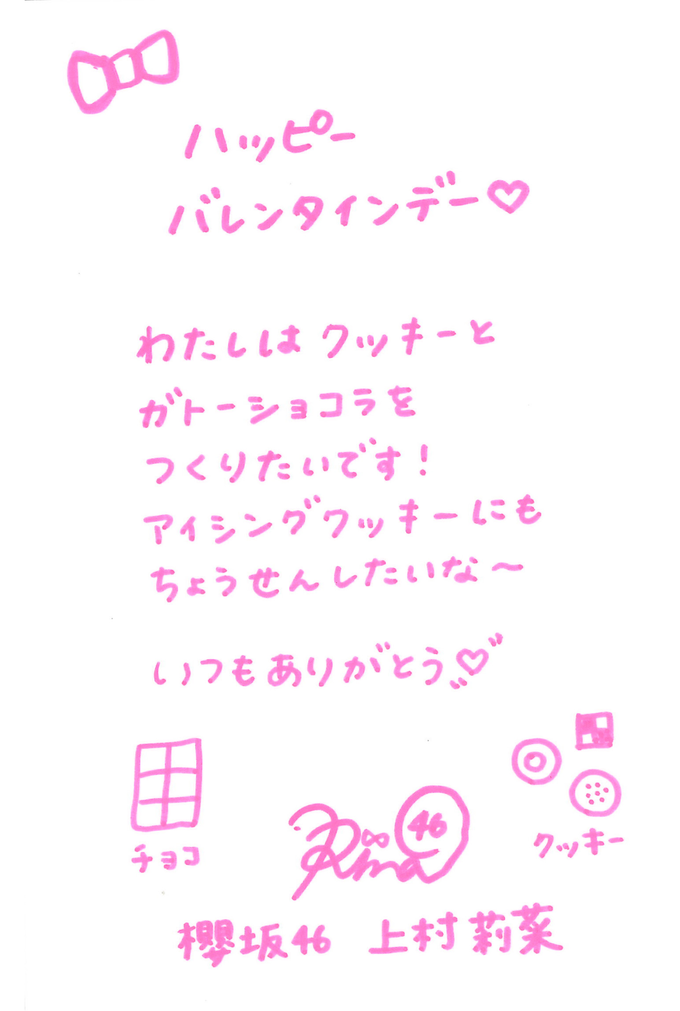 ハッピー
バレンタインデー♡
わたしは クッキーと
ガトーショコラを
つくりたいです!
アイシングクッキーにも
ちょうせんしたいな〜
いつもありがとう♡
チョコ
Rina 46
クッキー
櫻坂46 上村莉菜